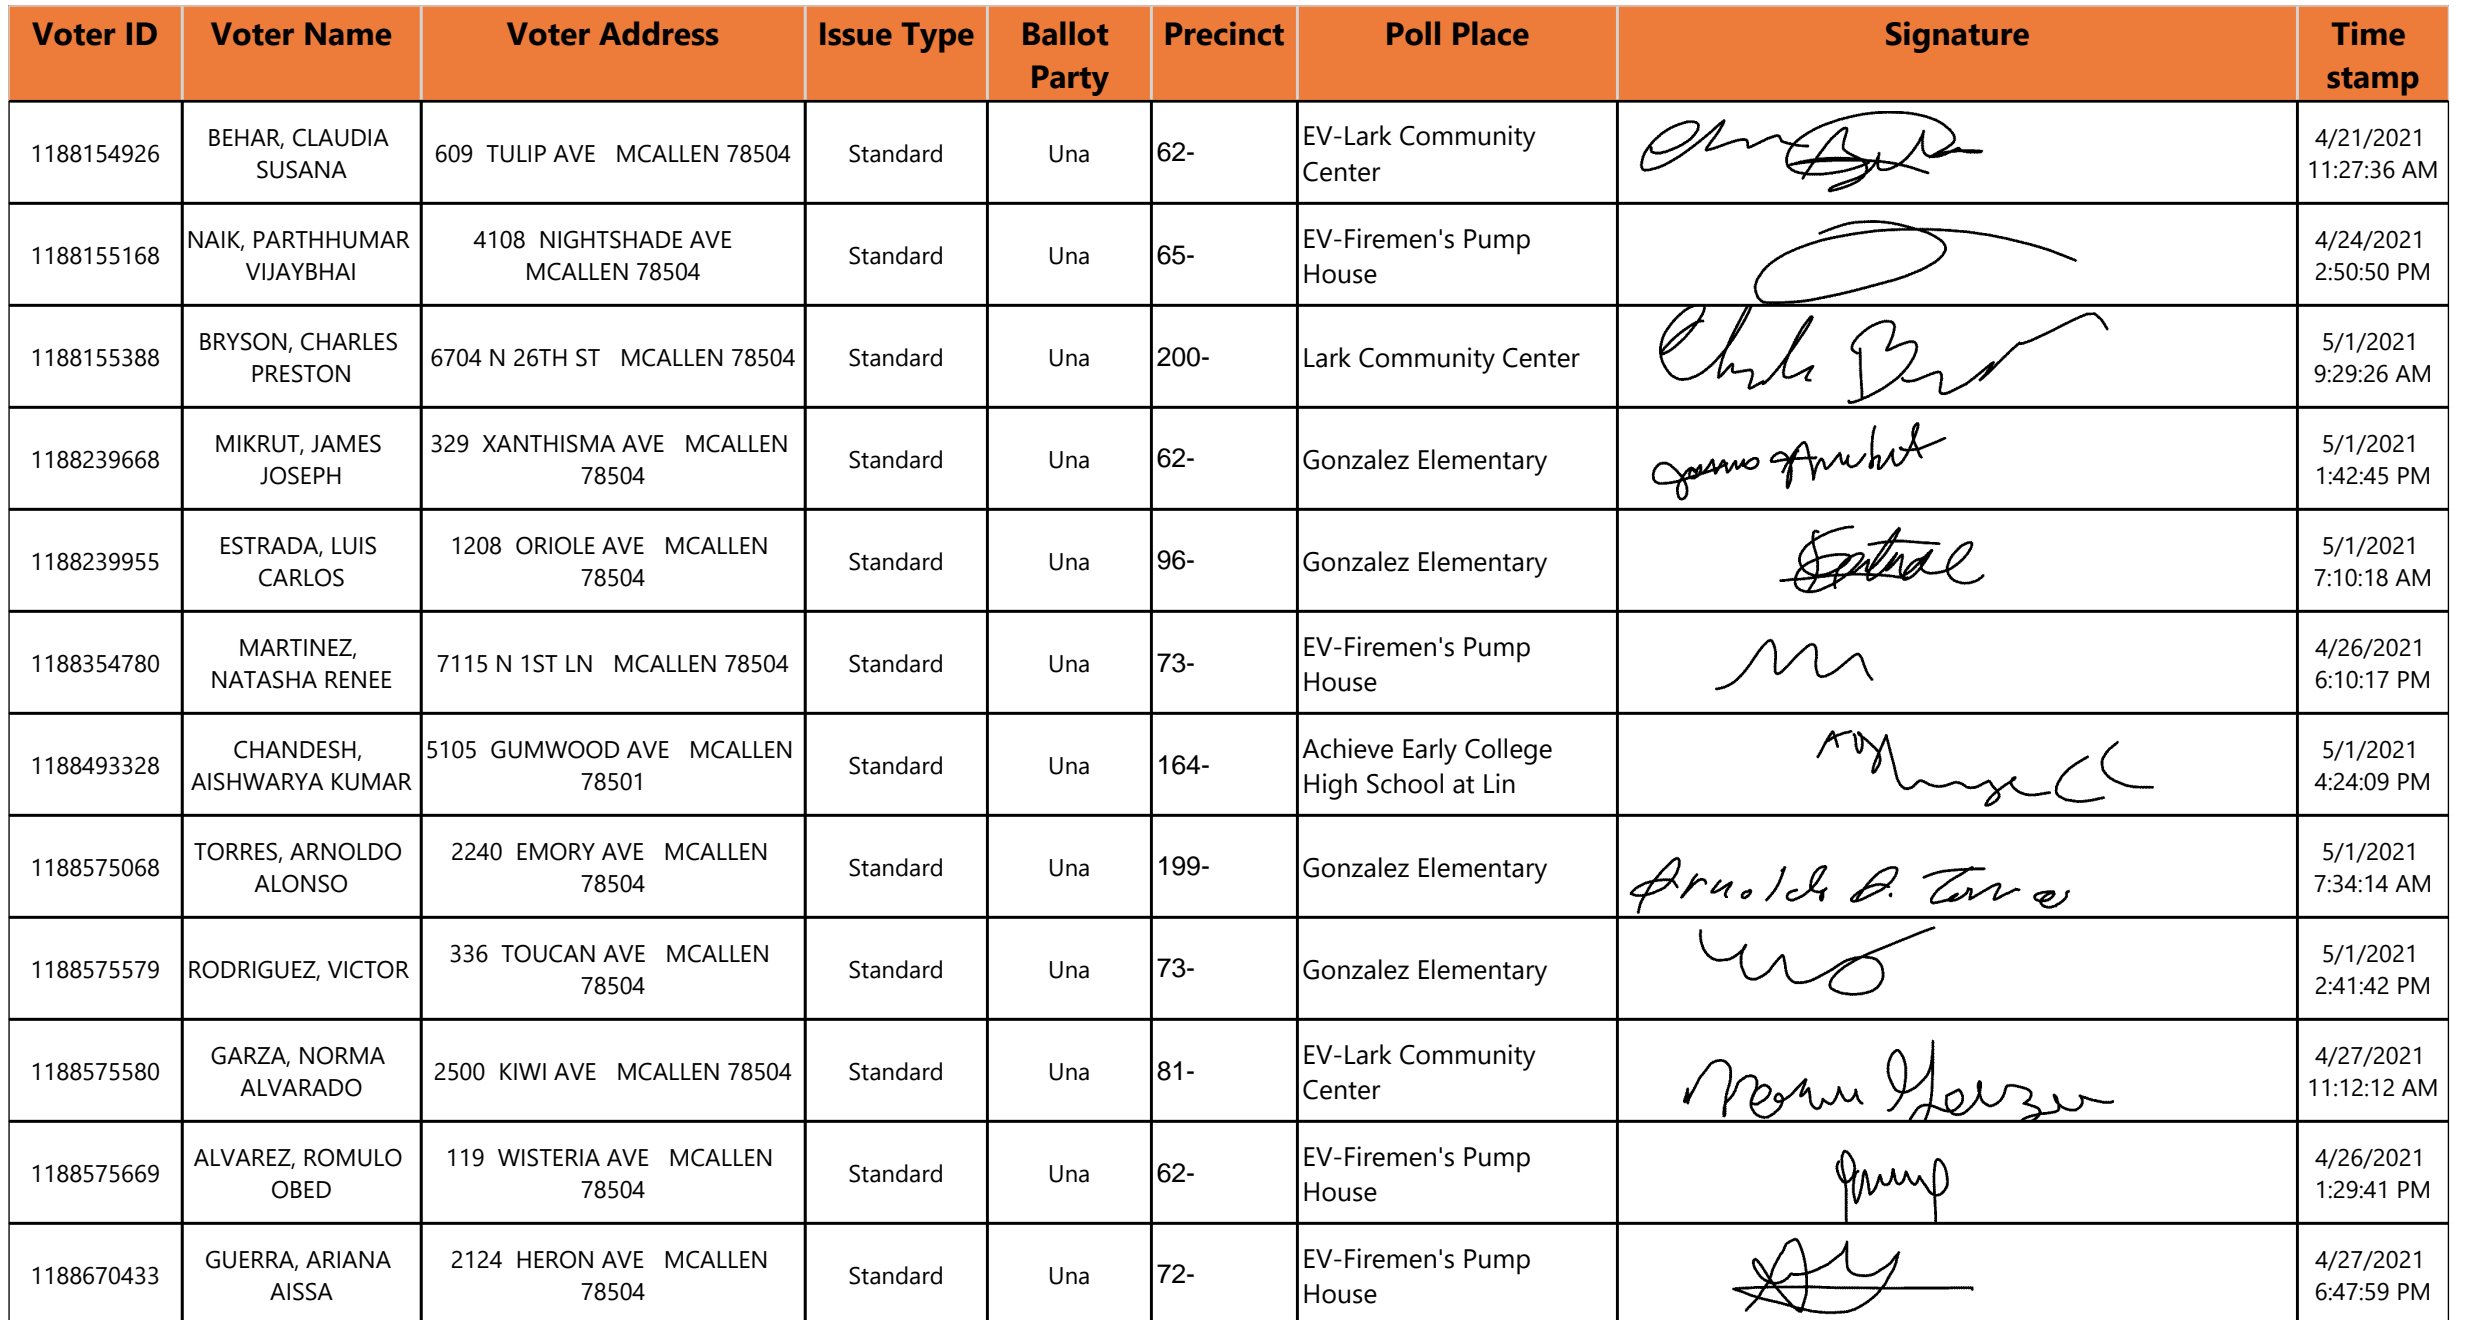 Voter ID Voter Name Voter Address Issue Type Ballot Party Precinct Poll Place Signature Time stamp
1188154926 BEHAR, CLAUDIA SUSANA 609 TULIP AVE MCALLEN 78504 Standard Una 62- EV-Lark Community Center 4/21/2021 11:27:36 AM
1188155168 NAIK, PARTHHUMAR VIJAYBHAI 4108 NIGHTSHADE AVE MCALLEN 78504 Standard Una 65- EV-Firemen's Pump House 4/24/2021 2:50:50 PM
1188155388 BRYSON, CHARLES PRESTON 6704 N 26TH ST MCALLEN 78504 Standard Una 200- Lark Community Center 5/1/2021 9:29:26 AM
1188239668 MIKRUT, JAMES JOSEPH 329 XANTHISMA AVE MCALLEN 78504 Standard Una 62- Gonzalez Elementary 5/1/2021 1:42:45 PM
1188239955 ESTRADA, LUIS CARLOS 1208 ORIOLE AVE MCALLEN 78504 Standard Una 96- Gonzalez Elementary 5/1/2021 7:10:18 AM
1188354780 MARTINEZ, NATASHA RENEE 7115 N 1ST LN MCALLEN 78504 Standard Una 73- EV-Firemen's Pump House 4/26/2021 6:10:17 PM
1188493328 CHANDESH, AISHWARYA KUMAR 5105 GUMWOOD AVE MCALLEN 78501 Standard Una 164- Achieve Early College High School at Lin 5/1/2021 4:24:09 PM
1188575068 TORRES, ARNOLDO ALONSO 2240 EMORY AVE MCALLEN 78504 Standard Una 199- Gonzalez Elementary Arnoldo A. Torres 5/1/2021 7:34:14 AM
1188575579 RODRIGUEZ, VICTOR 336 TOUCAN AVE MCALLEN 78504 Standard Una 73- Gonzalez Elementary 5/1/2021 2:41:42 PM
1188575580 GARZA, NORMA ALVARADO 2500 KIWI AVE MCALLEN 78504 Standard Una 81- EV-Lark Community Center Norma Garza 4/27/2021 11:12:12 AM
1188575669 ALVAREZ, ROMULO OBED 119 WISTERIA AVE MCALLEN 78504 Standard Una 62- EV-Firemen's Pump House 4/26/2021 1:29:41 PM
1188670433 GUERRA, ARIANA AISSA 2124 HERON AVE MCALLEN 78504 Standard Una 72- EV-Firemen's Pump House 4/27/2021 6:47:59 PM